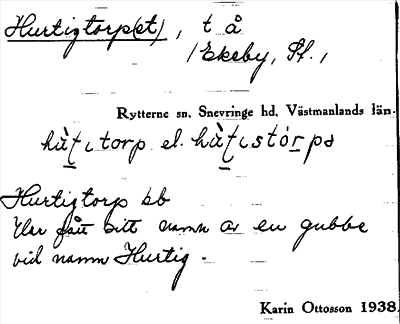 Hurtigtorp(et), t å
/Ekeby, St.,
Rytterne sn. Snevringe hd. Västmanlands län.
el.
Hurtigtorp bb
Har fått sitt namn av en gubbe
vid namn Hurtig.
Karin Ottosson 1938.